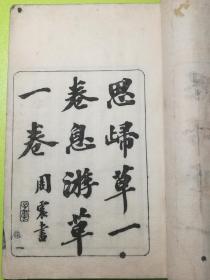 思歸草一
卷息游草
一卷
周震書